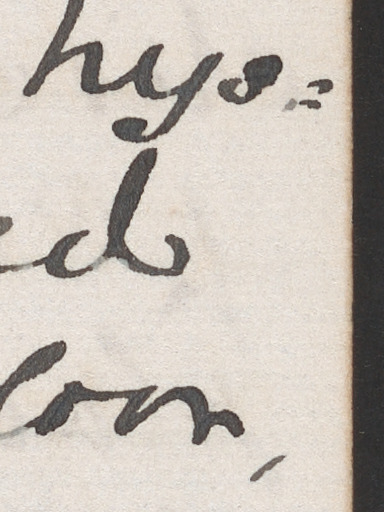 hys=
ed
loon,